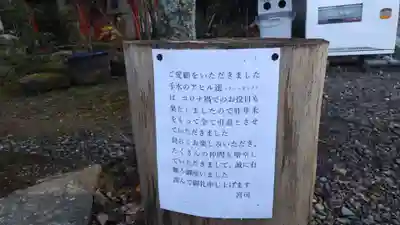 ご愛顧をいただきました
手水のアヒル達
は コロナ禍でのお役目も
果たしましたので昨年末
をもって全て引退とさせ
ていただきました
長らくお楽しみいただき、
たくさんの仲間も
していただきまして、誠に有
難う御座いました
謹んで御礼申し上げます
宮司